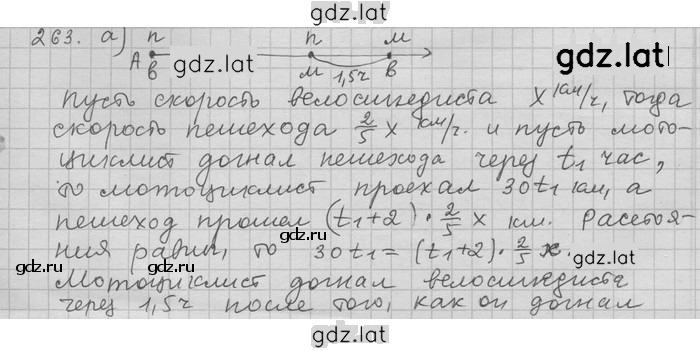 gdz.lat
263. а) п п м
gdz.lat
А в м 1,5ч в
gdz.lat
пусть скорость велосипедиста x км/ч, тогда
скорость пешехода 2/5 x км/ч. и пусть мото-
циклист догнал пешехода через t₁ час,
то мотоциклист проехал 30t₁ км, а
пешеход прошел (t₁+2)·2/5 x км. Расстоя-
gdz.lat
gdz.lat
ния равны, то 30t₁ = (t₁+2)·2/5 x.
Мотоциклист догнал велосипедиста
через 1,5ч после того, как он догнал
gdz.lat